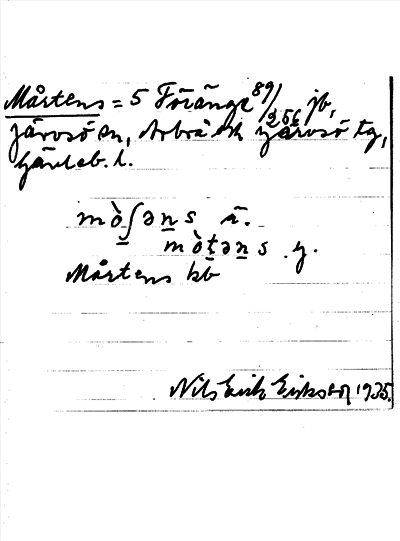 Mårtens = 5 Föränge 89/256 jb,
Järvsö sn, Arbrå och Järvsö tg,
Gävleb. l.
mò̱ʃəṉs ä.
mò̱ṯəṉs . y.
Mårtens kb
Nils Erik Eriksson 1935.